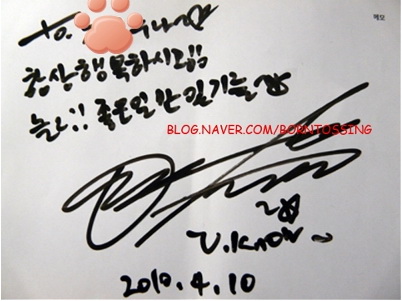 메모
to.
항상 행복하시고!!
늘~!! 좋은일만 있기를
BLOG.NAVER.COM/BORNTOSSING
U.KNOW ~
2010. 4. 10